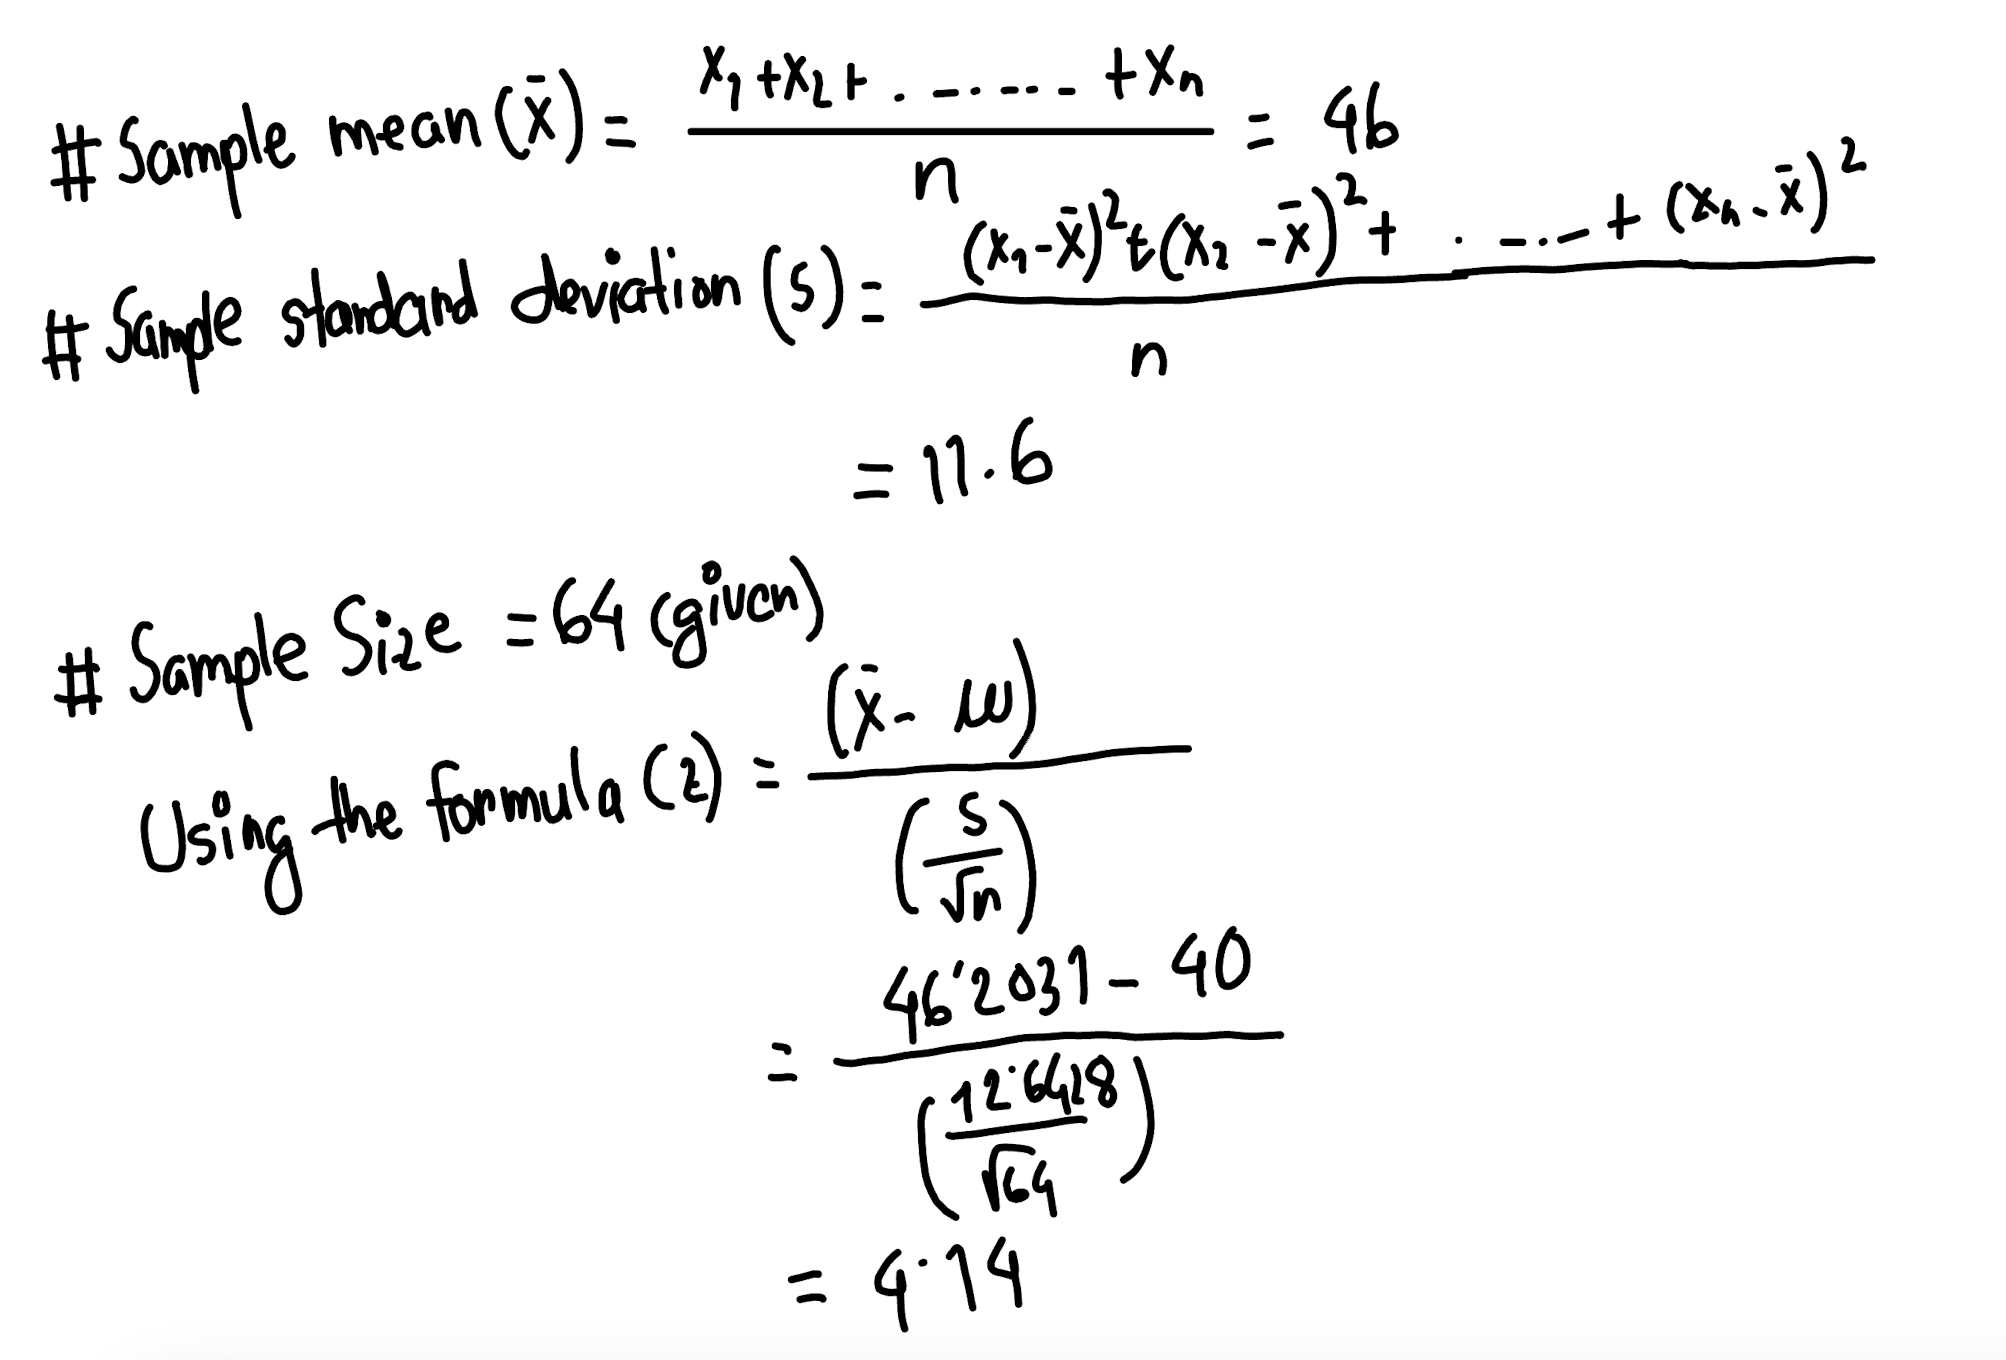 # Sample mean (x̄) = (x₁ + x₂ + . -.--- + xₙ) / n = 46
# Sample standard deviation (s) = ((x₁ - x̄)² + (x₂ - x̄)² + . --.- + (xₙ - x̄)²) / n
= 11.6
# Sample Size = 64 (given)
Using the formula (z) = (x̄ - μ) / (s / √n)
= 46.2031 - 40 / (12.6428 / √64)
= 4.14